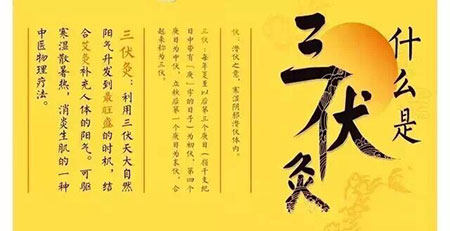 什么是
三伏灸
伏：潜伏之意，寒湿阴邪潜伏体内。
三伏：每年夏至以后第三个庚日（指干支纪
日中带有“庚”字的日子）为初伏，第四个
庚日为中伏，立秋后第一个庚日为末伏，合
起来称为三伏。
三伏灸：利用三伏天大自然
阳气升发到最旺盛的时机，结
合艾灸补充人体的阳气。可驱
寒湿散暑热，消炎生肌的一种
中医物理疗法。